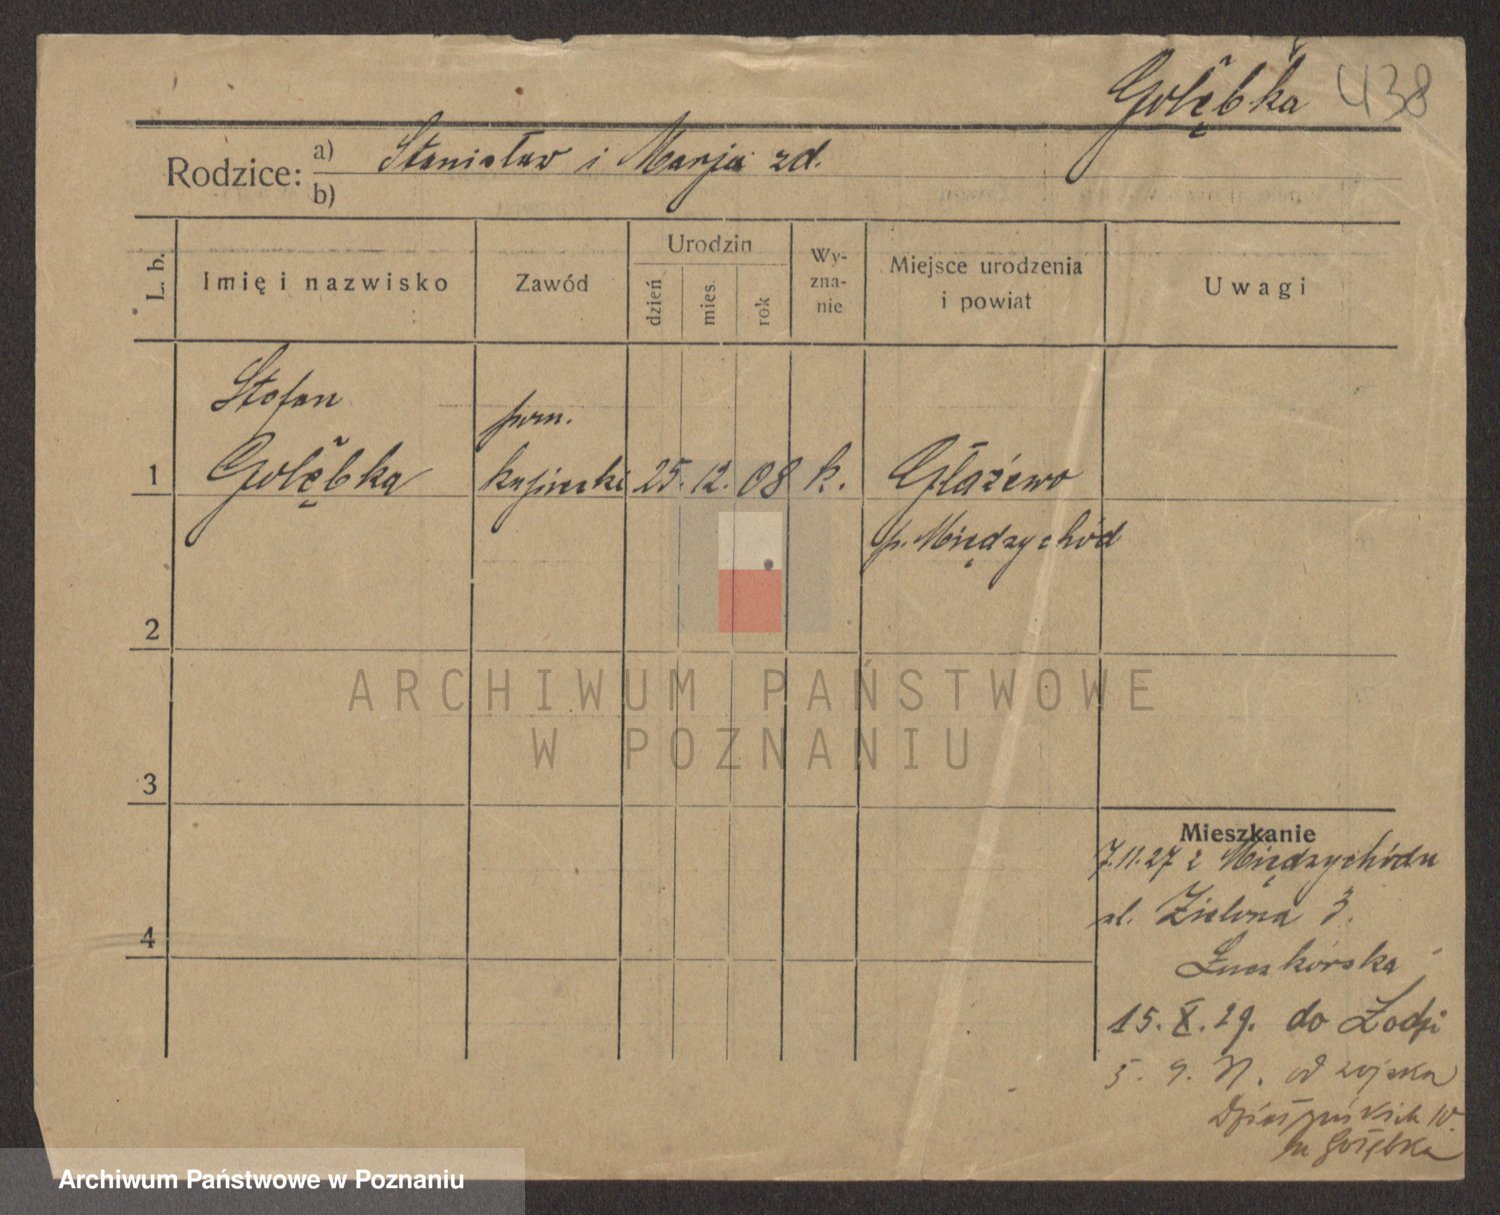 Gołębka 438
Rodzice: a) Stanisław i Marja zd.
b)
L. b.
Imię i nazwisko
Zawód
Urodzin
dzień
mies.
rok
Wy-
zna-
nie
Miejsce urodzenia
i powiat
Uwagi
Stefan
Gołębka
pom.
kupiecki
25. 12. 08
k.
Głażewo
p. Międzychód
1
2
3
4
ARCHIWUM PAŃSTWOWE
W POZNANIU
Mieszkanie
7.11.27 z Międzychodu
ul. Zielona 3.
15. X. 29. do Łodzi
5. 9. 31. od wojska
10.
u Gołębka
Archiwum Państwowe w Poznaniu